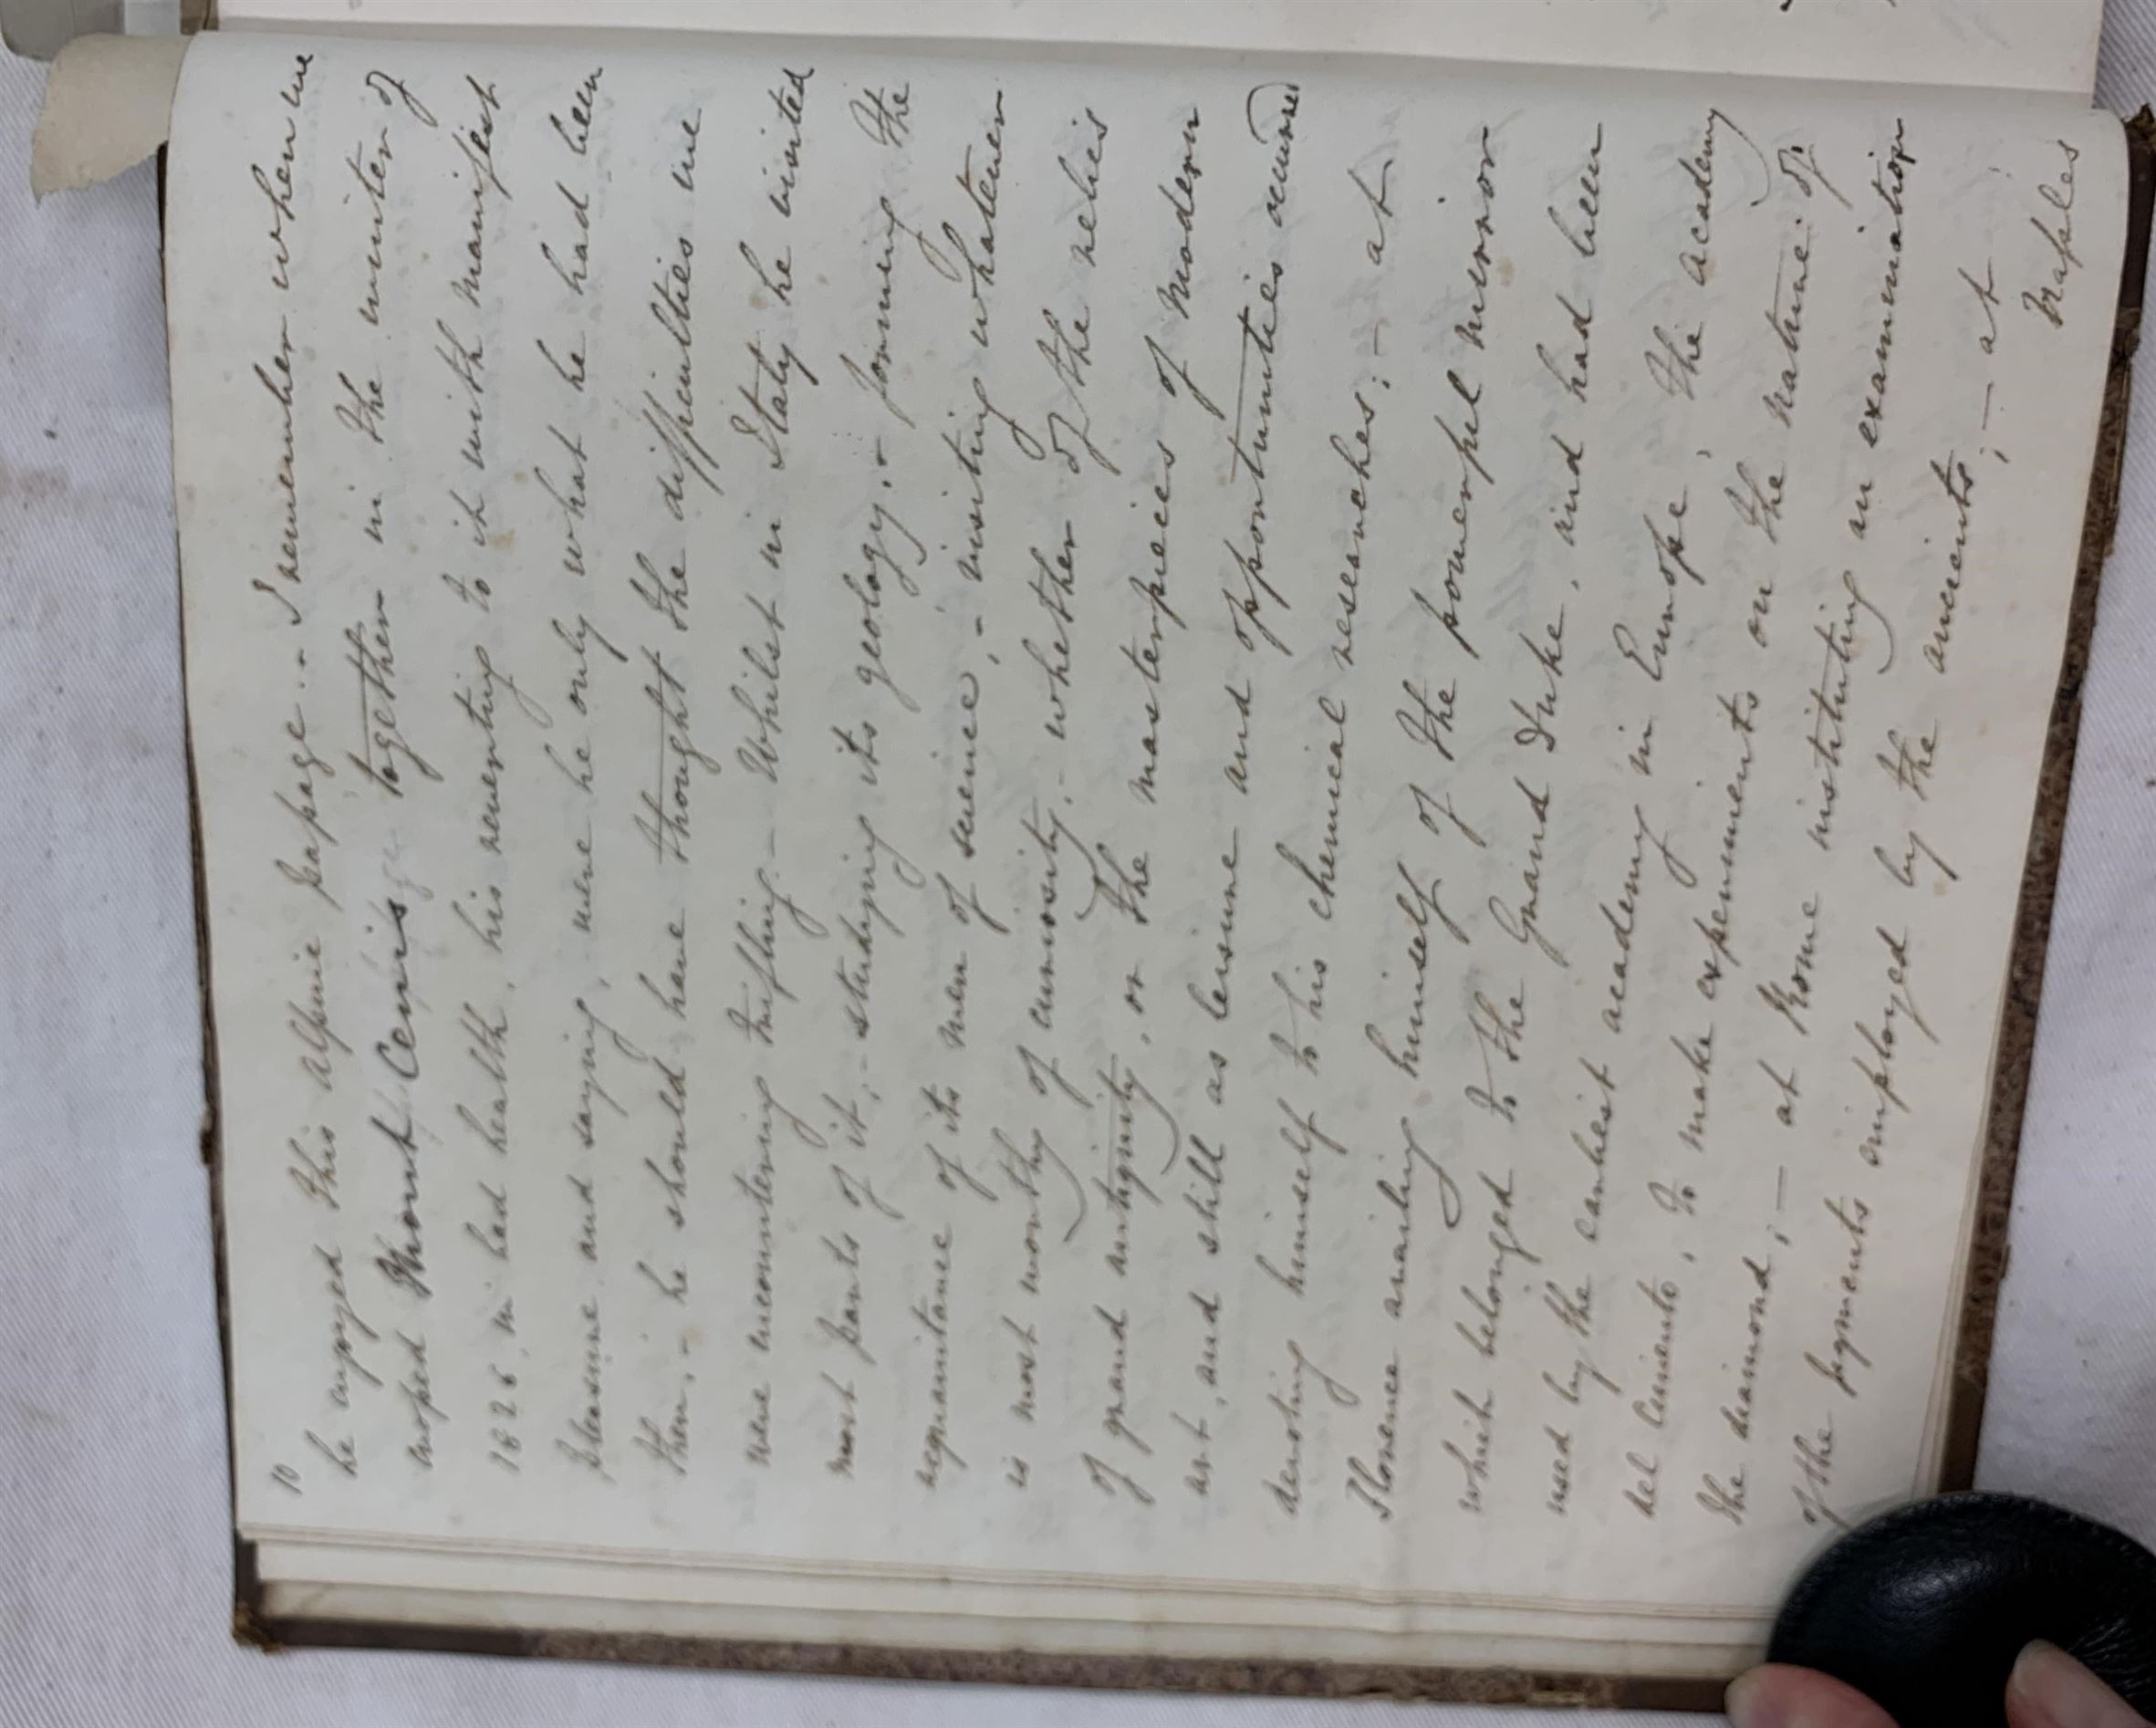 10
he enjoyed this Alpine passage.. - I remember when we
crossed Mount Cenis together in the winter of
1826, in bad health, his reverting to it with manifest
pleasure and saying, were he only what he had been
then, - he should have thought the difficulties we
were encountering trifling. - Whilst in Italy he visited
most parts of it; - studying its geology. - forming the
acquaintance of its men of science, - visiting whatever
is most worthy of curiosity, - whether of the relics
of grand antiquity, or the masterpieces of modern
art, and still as leisure and opportunities occurred
devoting himself to his chemical researches; - at
Florence availing himself of the powerful mirror
which belonged to the Grand Duke, and had been
used by the earliest academy in Europe, the academy
del Cimento, to make experiments on the nature of
the diamond; - at Rome instituting an examination
of the pigments employed by the ancients; - at
Naples